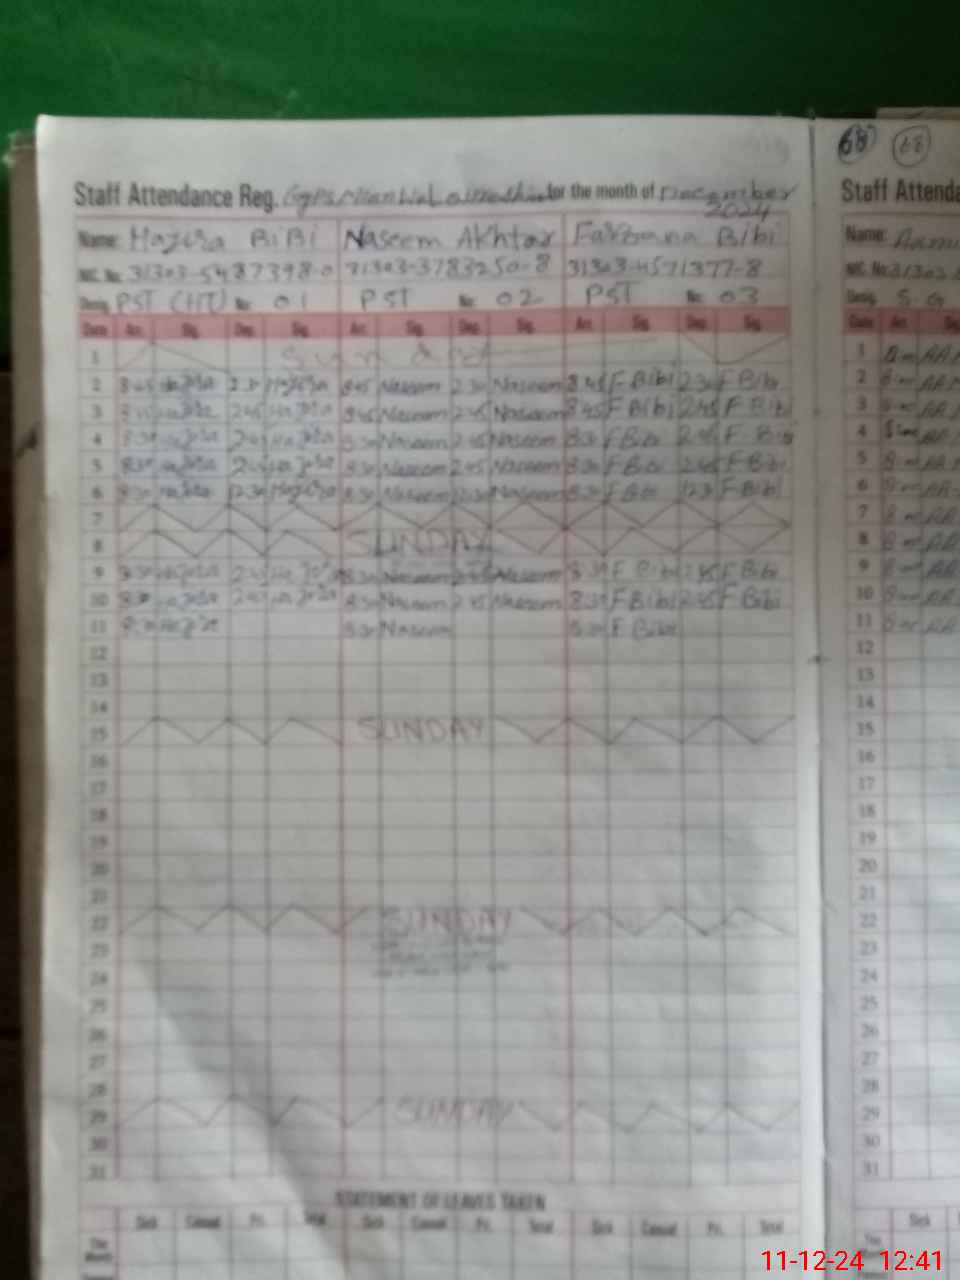 68 68
Staff Attendance Reg. for the month of December
2024
Staff Attenda
Name: Hajira BiBi Naseem Akhtar Farzana Bibi
Name:
NIC. No. 31303-5487398-0 31303-3783250-8 31303-4571377-8
NIC. No. 31303
Desig. PST (HT) No: 01 PST No: 02 PST No: 03
Desig. S.G
Date Arr. Sig. Dep. Sig. Arr. Sig. Dep. Sig. Arr. Sig. Dep. Sig.
Date Arr. Sig
1 Sunday
1
2 8:45 Hajira 2:30 Hajira 8:45 Naseem 2:30 Naseem 8:45 F Bibi 2:30 F Bibi
2
3 8:45 Hajira 2:45 Hajira 8:45 Naseem 2:45 Naseem 8:45 F Bibi 2:45 F Bibi
3
4 8:30 Hajira 2:45 Hajira 8:30 Naseem 2:45 Naseem 8:30 F Bibi 2:45 F Bibi
4
5 8:30 Hajira 2:45 Hajira 8:30 Naseem 2:45 Naseem 8:30 F Bibi 2:45 F Bibi
5
6 8:30 Hajira 12:30 Hajira 8:30 Naseem 12:30 Naseem 8:30 F Bibi 12:30 F Bibi
6
7
7
8 SUNDAY
8
9 8:30 Hajira 2:45 Hajira 8:30 Naseem 2:45 Naseem 8:30 F Bibi 2:45 F Bibi
9
10 8:30 Hajira 2:45 Hajira 8:30 Naseem 2:45 Naseem 8:30 F Bibi 2:45 F Bibi
10
11 8:30 Hajira 8:30 Naseem 8:30 F Bibi
11
12
12
13
13
14
14
15 SUNDAY
15
16
16
17
17
18
18
19
19
20
20
21
21
22 SUNDAY
22
23
23
24
24
25
25
26
26
27
27
28
28
29 SUNDAY
29
30
30
31
31
STATEMENT OF LEAVES TAKEN
Sick Casual Pri. Total Sick Casual Pri. Total Sick Casual Pri. Total
Sick
The
Month
The
Month
11-12-24 12:41